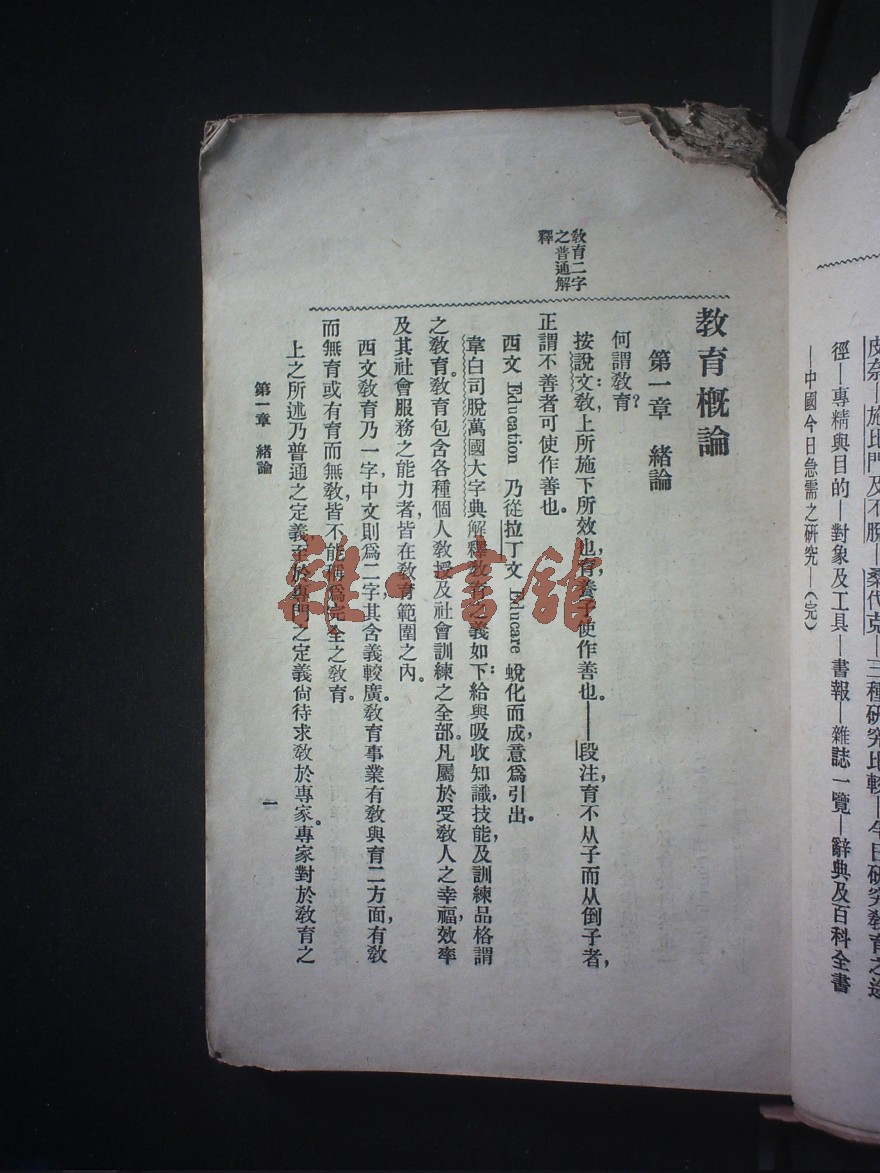 皮奈—施比門及不脫—桑代克—三種研究比較—今日研究教育之途
徑—專精與目的—對象及工具—書報—雜誌一覽—辭典及百科全書
—中國今日急需之研究—(完)
教育概論
第一章 緒論
教育二字
之普通解
釋
何謂教育?
按說文:教,上所施下所效也,育養子使作善也。——段注,育不从子而从倒子者,
正謂不善者可使作善也。
西文 Education 乃從拉丁文 Educare 蛻化而成,意爲引出。
韋白司脫萬國大字典解釋教育之義如下:給與吸收知識,技能,及訓練品格謂
之教育。教育包含各種個人教授及社會訓練之全部。凡屬於受教人之幸福,效率
及其社會服務之能力者,皆在教育範圍之內。
西文教育乃一字,中文則爲二字,其含義較廣。教育事業有教與育二方面,有教
而無育或有育而無教,皆不能稱爲完全之教育。
上之所述乃普通之定義,至於專門之定義尙待求教於專家。專家對於教育之
第一章 緒論
一
雜·書館